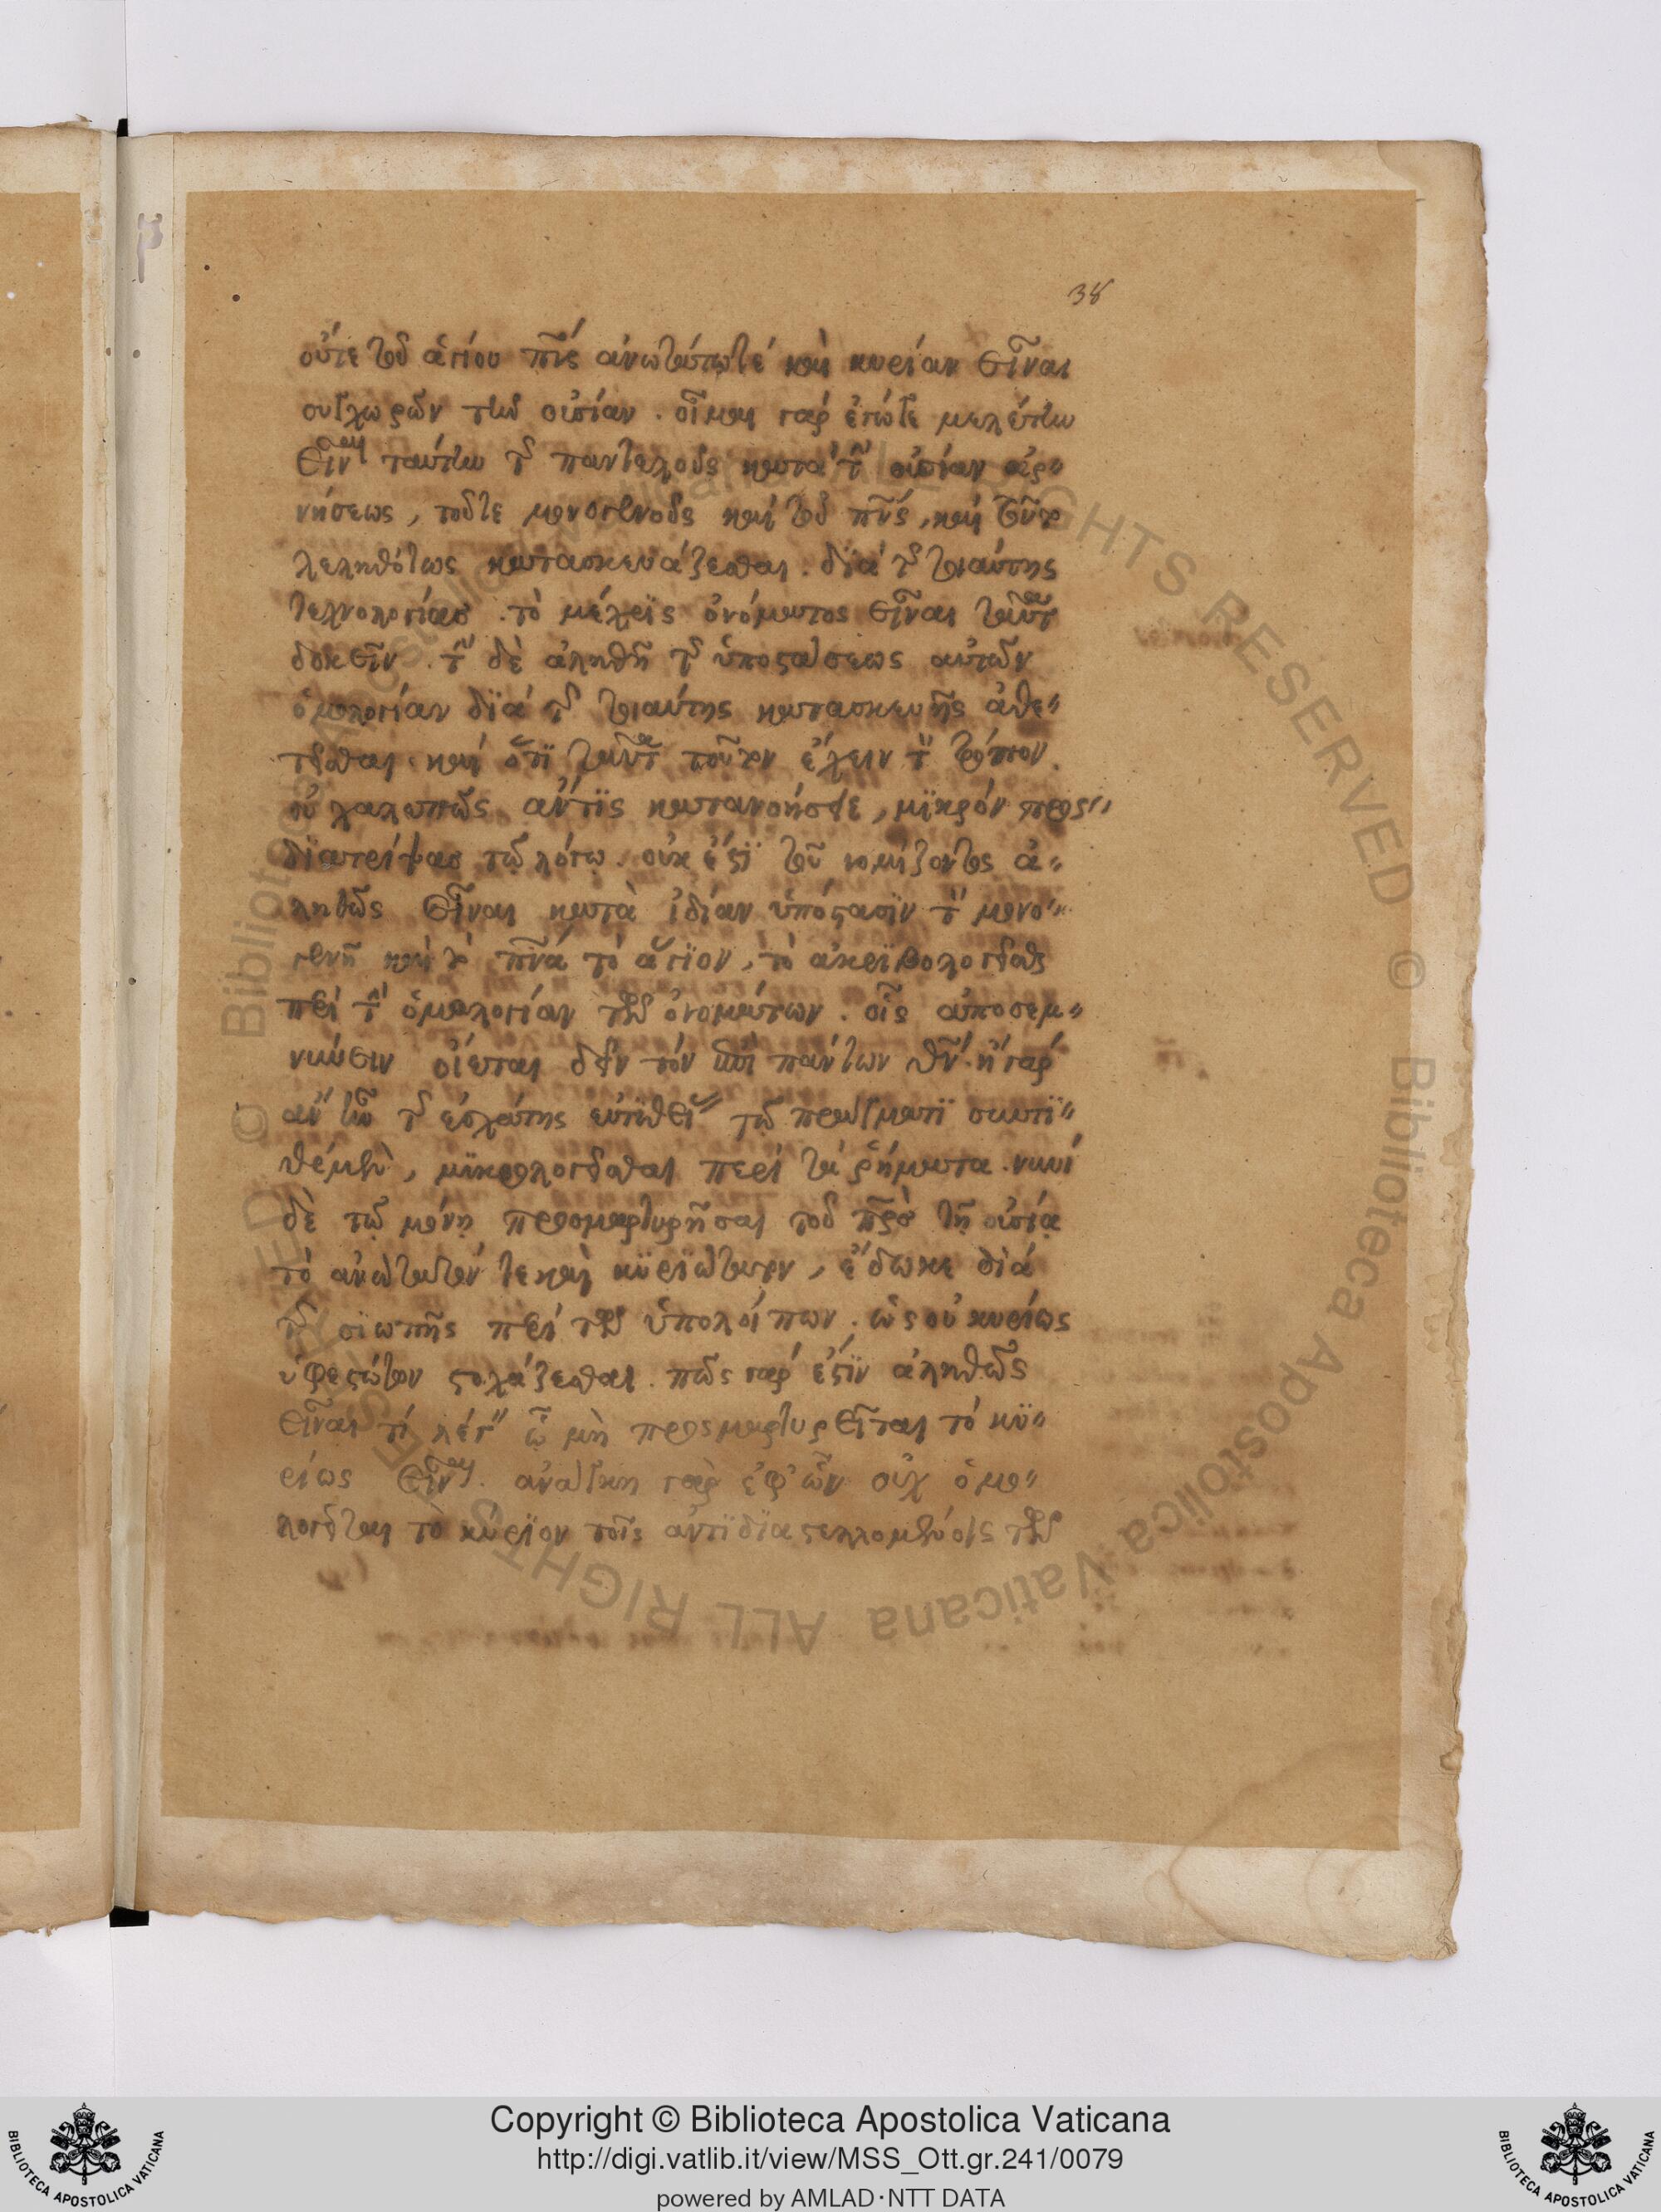 38
οὔτε τοῦ ἁγίου πν̅ς ἀνωτάτω τέ καὶ κυρίαν εἶναι
συγχωρῶν τὴν οὐσίαν. οἶμαι γάρ ἔγωγε μελέτην
εἶναι ταύτην τῆς παντελοῦς κατά τὴν οὐσίαν ἀρ"
νήσεως, τοῦτε μονογενοῦς καὶ τοῦ πν̅ς, καὶ
λεληθότως κατασκευάζεσθαι. διὰ τῆς τοιαύτης
τεχνολογίας. τὸ μέχρις ὀνόματος εἶναι ταῦτα
δοκεῖν. τὴν δὲ ἀληθῆ τῆς ὑποστάσεως αὐτῶν
ὁμολογίαν διά τῆς τοιαύτης κατασκευῆς ἀθε"
τεῖσθαι. καὶ ὅτι ταῦτα τοῦτον ἔχειν τὸν τρόπον.
οὐ χαλεπῶς ἄν τις κατανοήσειε, μικρόν προς"
διατρίψας τῷ λόγῳ. οὐκ ἔστι τοῦ νομίζοντος ἀ"
ληθῶς εἶναι κατὰ ἰδίαν ὑπόστασιν τὸν μονο"
γενῆ καὶ τὸ πν̅α τὸ ἅγιον, τὸ ἀκριβολογεῖσθαι
περὶ τὴν ὁμολογίαν τῶν ὀνομάτων. οἷς ἀποσεμ"
νύνειν οἴεται δεῖν τόν ἐπὶ πάντων θν̅. ἦ γάρ
ἄν ἦν τῆς ἐσχάτης εὐηθείας τῷ πράγματι συντι"
θέμενον, μικρολογεῖσθαι περὶ τὰ ῥήματα. νυνὶ
δὲ τῷ μόνῃ προσμαρτυρῆσαι τοῦ πρ̅σ τῇ οὐσίᾳ
τὸ ἀνώτατόν τε καὶ κυριώτατον, ἔδωκε διά
τῆς σιωπῆς περὶ τῶν ὑπολοίπων. ὡς οὐ κυρίως
ὑφεστώτων στοχάζεσθαι. πῶς γάρ ἐστὶν ἀληθῶς
εἶναι τί λέγειν ᾧ μὴ προσμαρτυρεῖται τό κυ"
ρίως εἶναι. ἀνάγκη γὰρ ἐφ' ὧν οὐχ ὁμο"
λογεῖται τὸ κύριον τοῖς ἀντιδιαστελλομένοις τῶν
Copyright © Biblioteca Apostolica Vaticana
http://digi.vatlib.it/view/MSS_Ott.gr.241/0079
powered by AMLAD·NTT DATA
BIBLIOTECA APOSTOLICA VATICANA
BIBLIOTECA APOSTOLICA VATICANA
© Biblioteca Apostolica Vaticana ALL RIGHTS RESERVED © Biblioteca Apostolica Vaticana ALL RIGHTS RESERVED